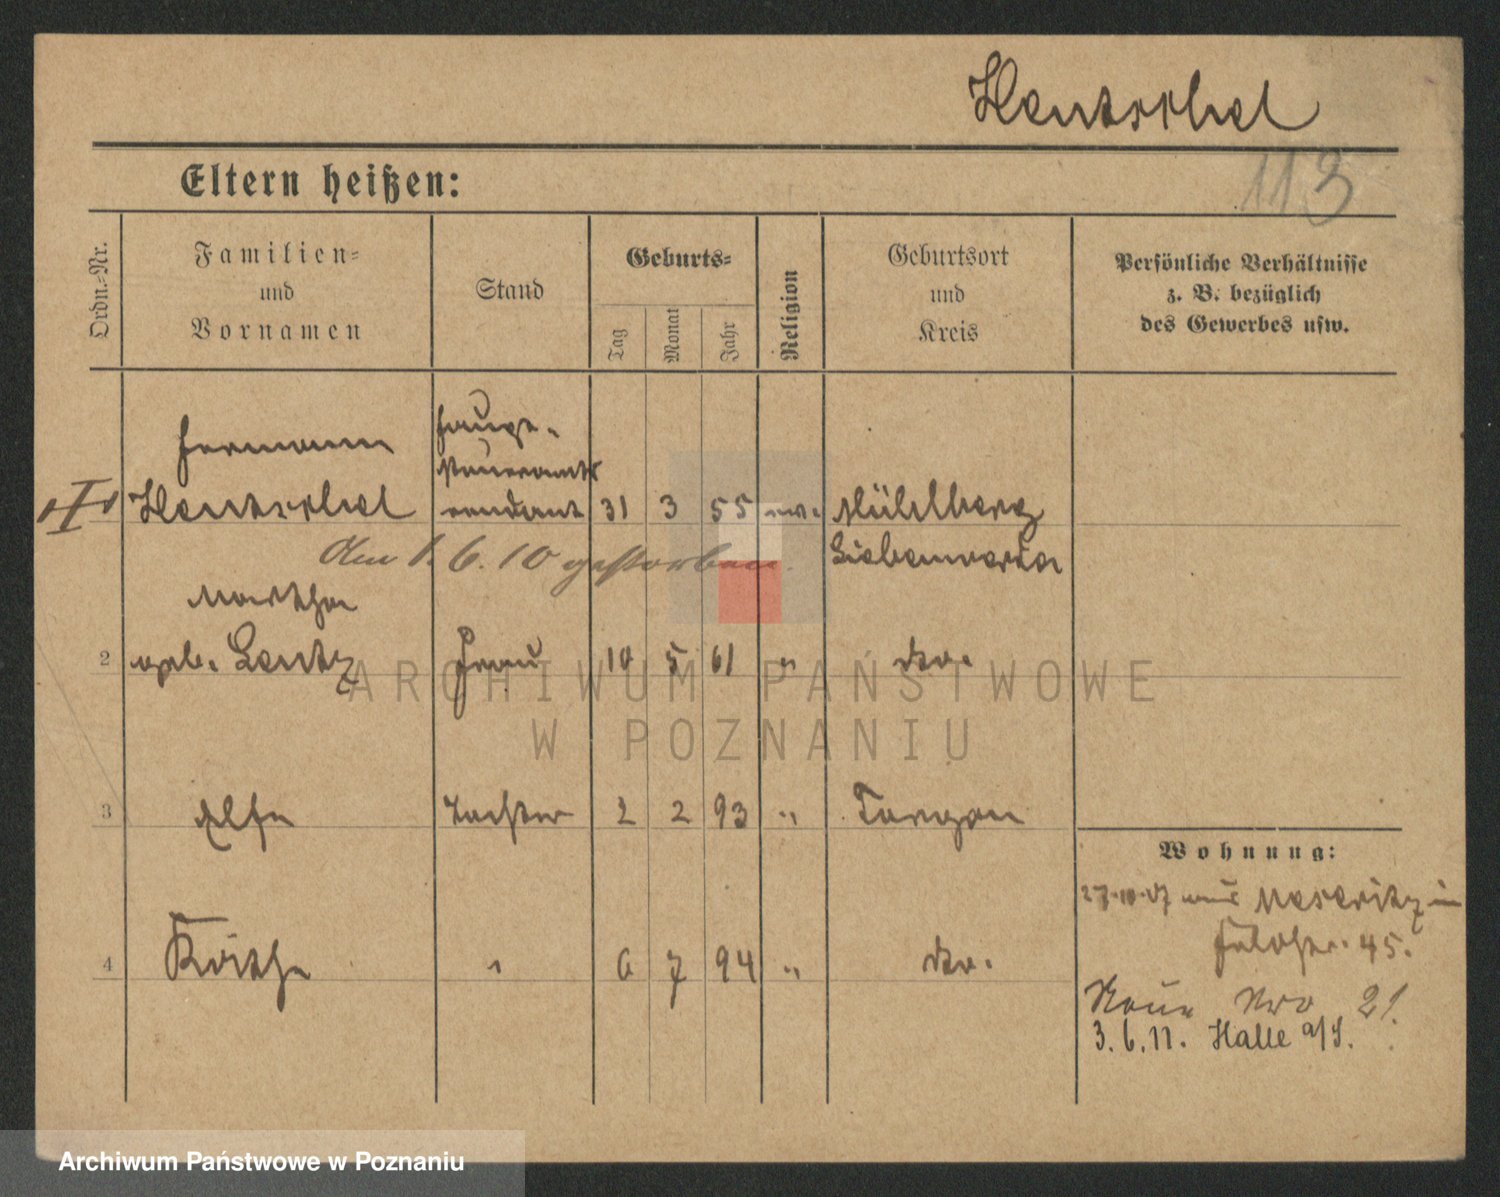 Hentschel
113
Eltern heißen:
Ordn.-Nr.
Familien-
und
Vornamen
Stand
Geburts-
Tag
Monat
Jahr
Religion
Geburtsort
und
Kreis
Persönliche Verhältnisse
z. B. bezüglich
des Gewerbes usw.
Hermann
Hentschel
Haupt-
steueramts
rendant
31 3 55 ev.
Mühlberg
Liebenwerda
Am 1. 6. 10 gestorben.
2
Martha
geb. Lentz
Frau
10 5 61 "
do.
3
Else
Tochter
2 2 93 "
Torgau
4
Käthe
"
6 7 94 "
do.
Wohnung:
27.10.07 aus Meseritz in
45.
Neue Nro 21.
3.6.11. Halle a/S.
ARCHIWUM PAŃSTWOWE
W POZNANIU
Archiwum Państwowe w Poznaniu